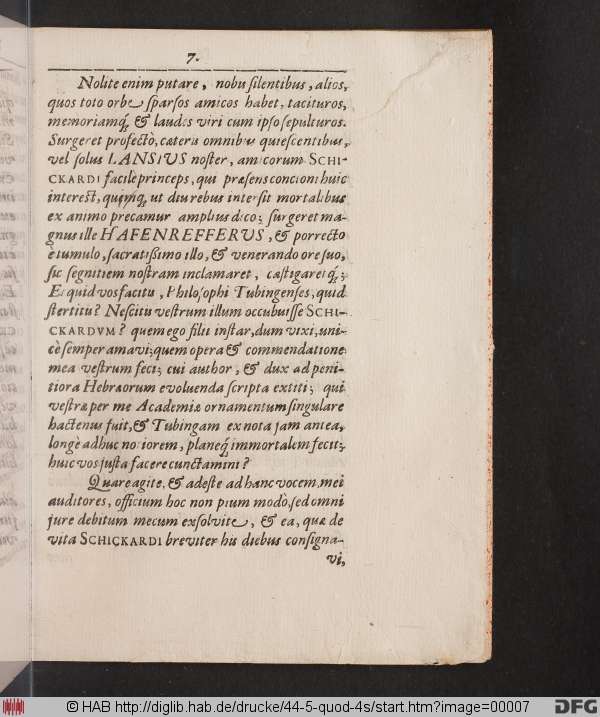 7.
Nolite enim putare, nobis silentibus, alios,
quos toto orbe sparsos amicos habet, tacituros,
memoriamq́; & laudes viri cum ipso sepulturos.
Surgeret profectò, cæteris omnibus quiescentibus,
vel solus LANSIUS noster, amicorum SCHI-
CKARDI facile princeps, qui præsens concioni huic
interest, quiq́; ut diu rebus intersit mortalibus
ex animo precamur amplius dico; surgeret ma-
gnus ille HAFENREFFERUS, & porrecto
è tumulo, sacratißimo illo, & venerando ore suo,
sic segnitiem nostram inclamaret, castigaretq́;
Ecquid vos facitis, Philosophi Tubingenses, quid
stertitis? Nescitis vestrum illum occubuisse SCHI-
CKARDVM? quem ego filii instar, dum vixi, uni-
cè semper amavi; quem opera & commendatione
mea vestrum feci; cui author, & dux ad peni-
tiora Hebræorum evoluenda scripta extiti; qui
vestræ per me Academiæ ornamentum singulare
hactenus fuit, & Tubingam ex nota jam antea,
longè adhuc notiorem, planeq́; immortalem fecit;
huic vos justa facere cunctamini?
Quare agite, & adeste ad hanc vocem, mei
auditores, officium hoc non pium modò, sed omni
jure debitum mecum exsolvite, & ea, quæ de
vita SCHICKARDI breviter his diebus consigna-
vi,
© HAB http://diglib.hab.de/drucke/44-5-quod-4s/start.htm?image=00007
DFG